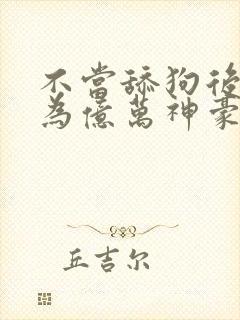 不當舔狗後
為億萬神豪
丘吉尔